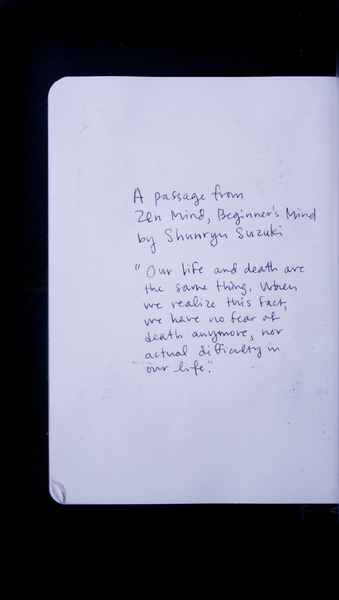 A passage from
Zen Mind, Beginner's Mind
by Shunryu Suzuki
"Our life and death are
the same thing. When
we realize this fact,
we have no fear of
death anymore, nor
actual difficulty in
our life."